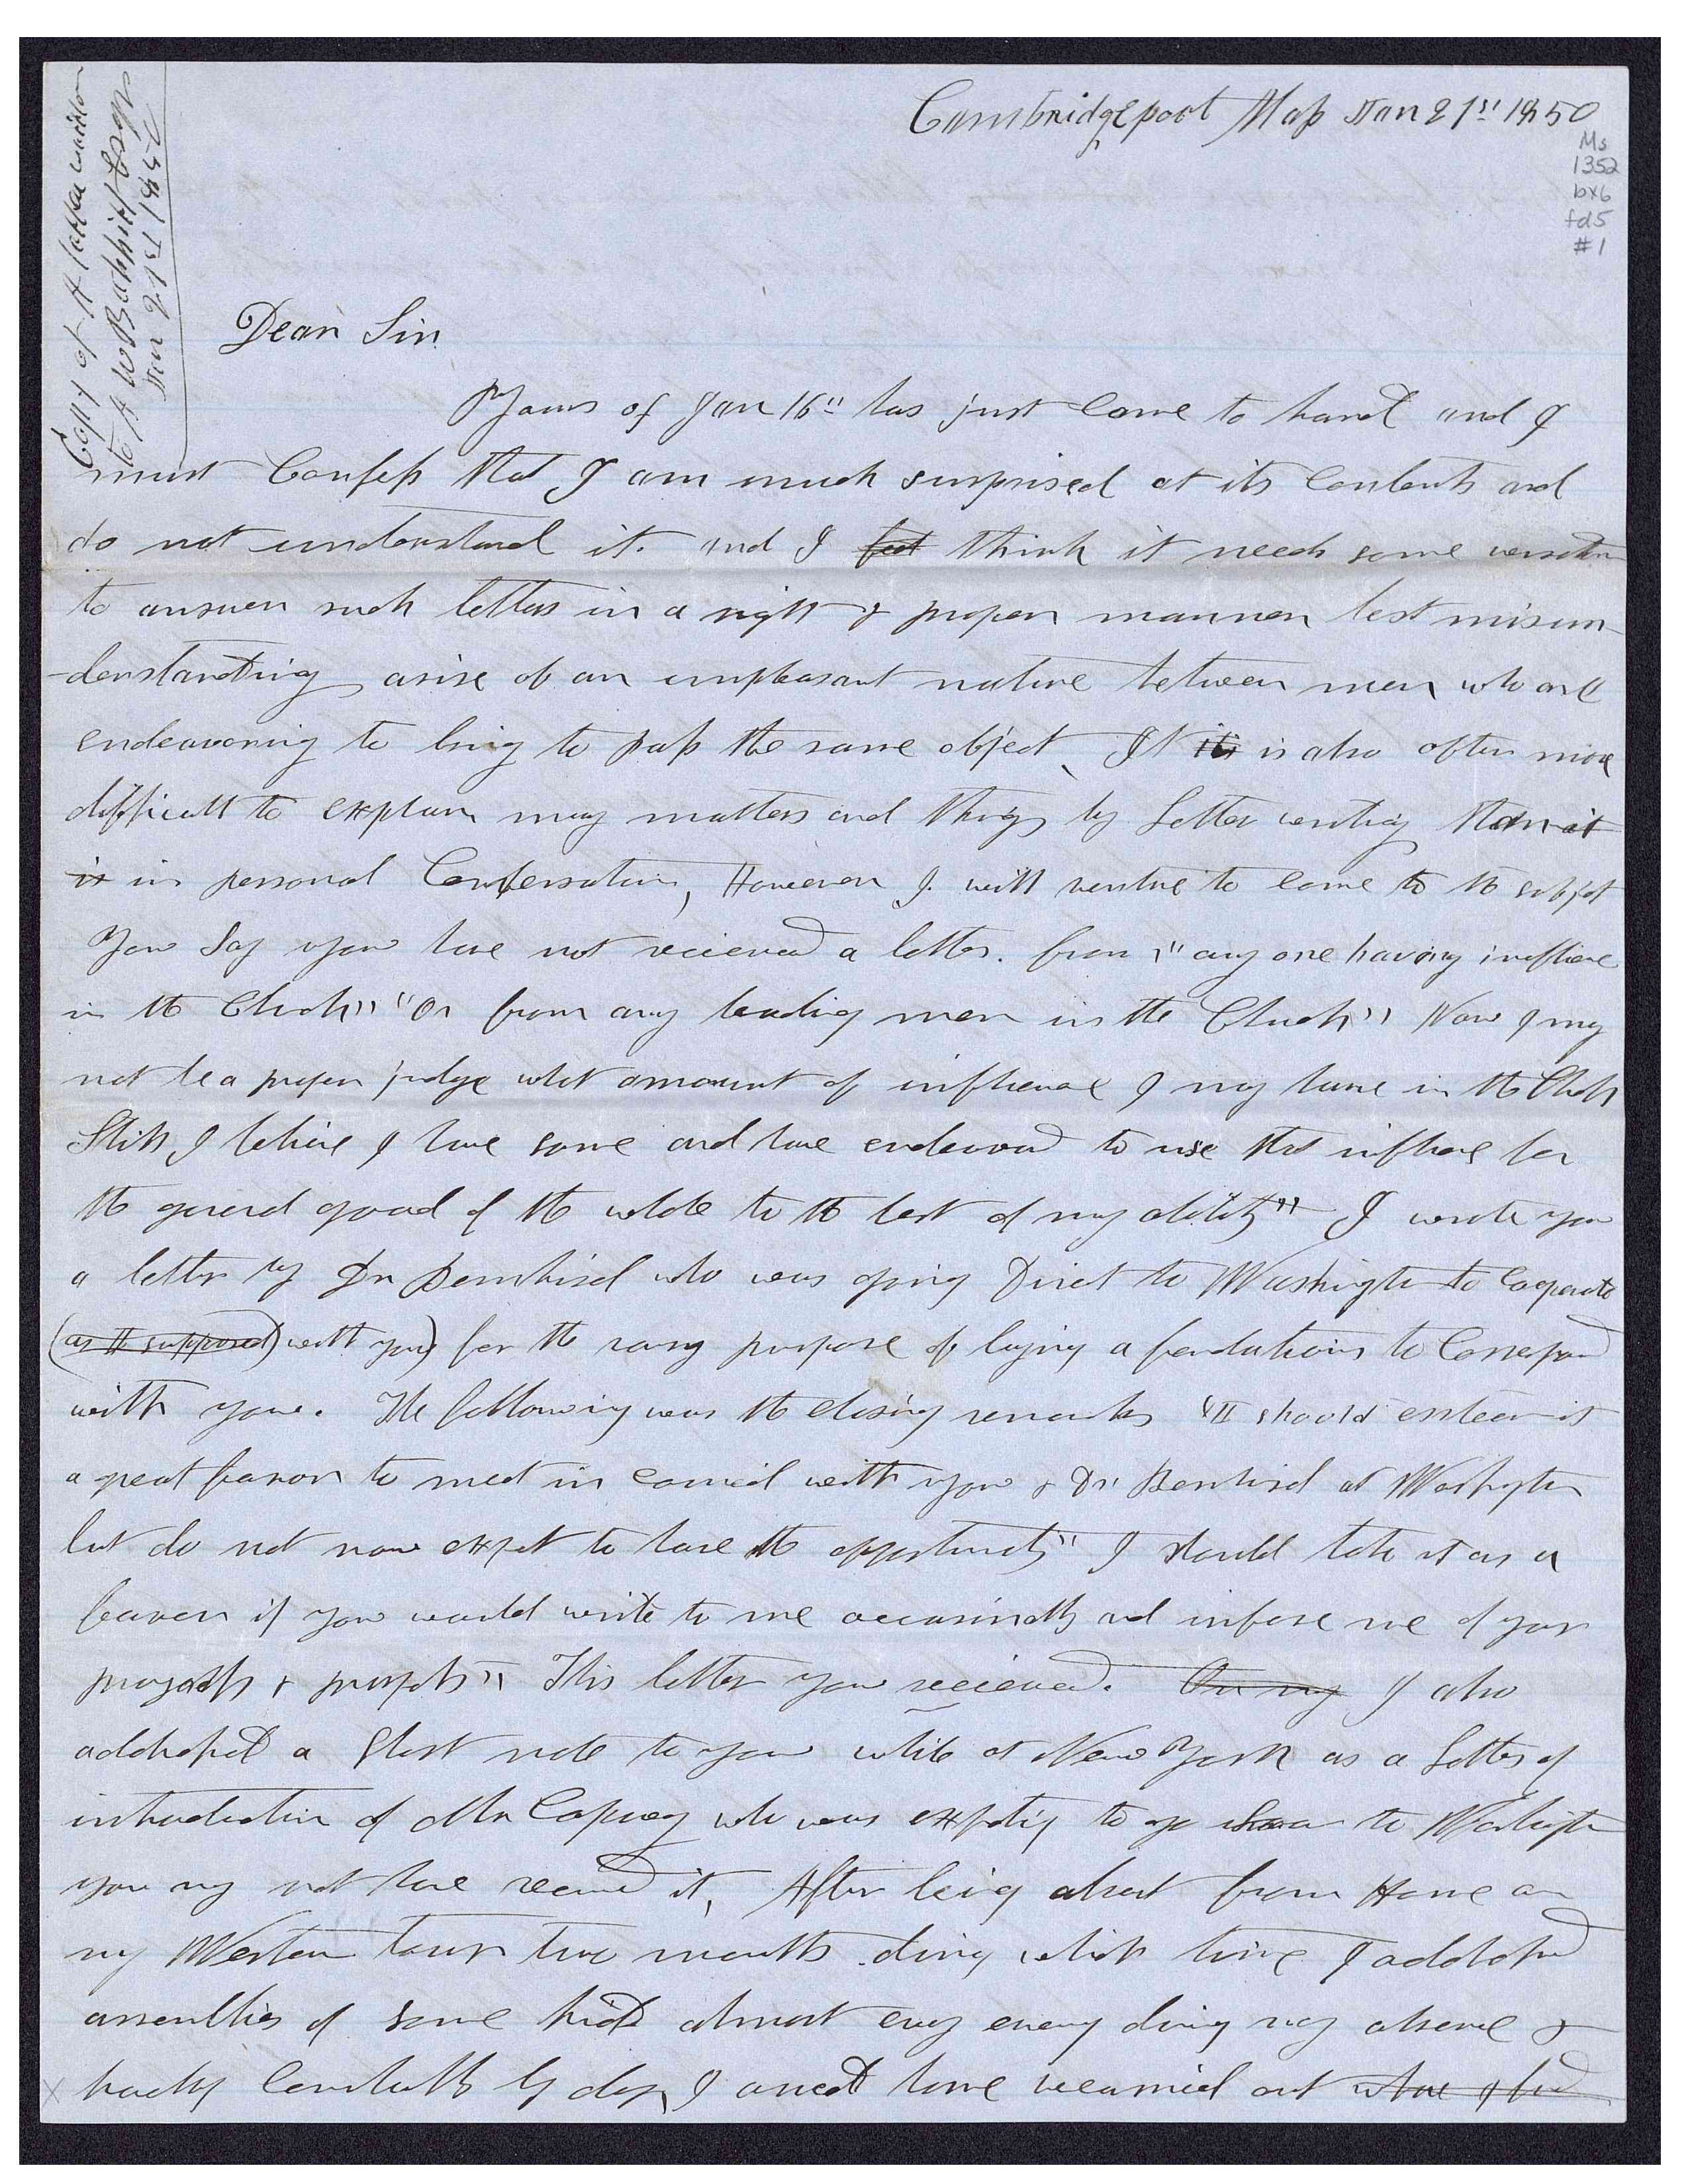 Cambridgeport Mass Jan 21st 1850
Ms
1352
bx6
fd5
#1
Copy of A letter written
to A W Babbitt Esqr
Jan 21st 1850
Dear Sir
Yours of Jan 16" has just come to hand and I
must Confess that I am much surprised at its Contents and
do not understand it. and I feel think it needs some
to answer such letters in a right & proper manner lest misun-
-derstanding arise of an unpleasant nature between men who are
endeavoring to bring to pass the same object, It is also often more
difficult to explain many matters and things by Letter writing than it
is in personal Conversation, However I will venture to come to the subject
You Say you have not recieved a letter. from "any one having influence
in the Church" "Or from any leading men in the Church" Now I may
not be a proper judge what amount of influence I may have in the Church
Still I believe I have some and have endeavored to use that influence for
the general good of the whole to the best of my ability" I wrote you
a letter by Dr Bernhisel who was going Direct to Washington to Cooperate
(as I supposed) with you) for the vary purpose of laying a foundation to Correspond
with you. The following was the closing remarks "I should esteem it
a great favor to meet in council with you & Dr Bernhisel at Washington
but do not now expect to have the opportunity" I should take it as a
favor if you would write to me occasionally and inform me of your
progress & prospects" This letter you recieved. On my I also
addressed a Short note to you while at New York as a Letter of
introduction of Mr Copway who was expecting to go to Washington
you may not have received it, After being absent from Home on
my Western tour two months during which time I addressed
assemblies of some kind almost evry evening during my absence &
travelling Constantly by day I arived home wearried out